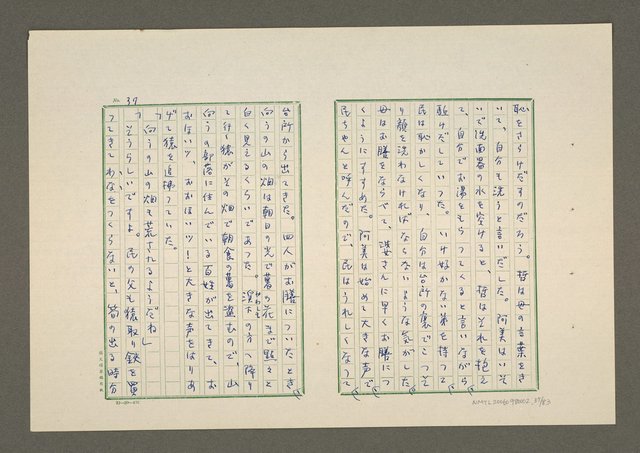 恥をさらけだすのだろう。哲は母の言葉をき
いて、自分も洗うと言いだした。阿美はいそ
いで洗面器の水を空けると、哲はそれを抱え
て、自分でお湯をもらつてくると言いながら
駈けだしていつた。いけ好かない弟を持つて
民は恥かしくなり、自分は台所の裏でこつそ
り顔を洗わなければならないような気がした
母はお膳をならべて、洪さんに早くお膳につ
くようにすすめた。阿美は始めて大きな声で
民ちやんと呼んだので、民はうれしくなつて
NMTL20060980002_37/83
No. 37
台所から出てきた。四人がお膳についたとき
向うの山の畑は朝日の光で薯の花まで點々と
白く見えるくらいであつた。渓下の方へ降り
て行く猿がその畑で朝食の薯を盗むので、山
向うの部落に住んでいる百姓が出てきて、お
おほいツ、おおほいツ!と大きな声をはりあ
げて猿を追拂つていた。
「向うの山の畑も荒されるようだね」
「そうらしいですよ。民の父も猿取り鋏を買
つてきてわなをつくらないと、筍の出る時分